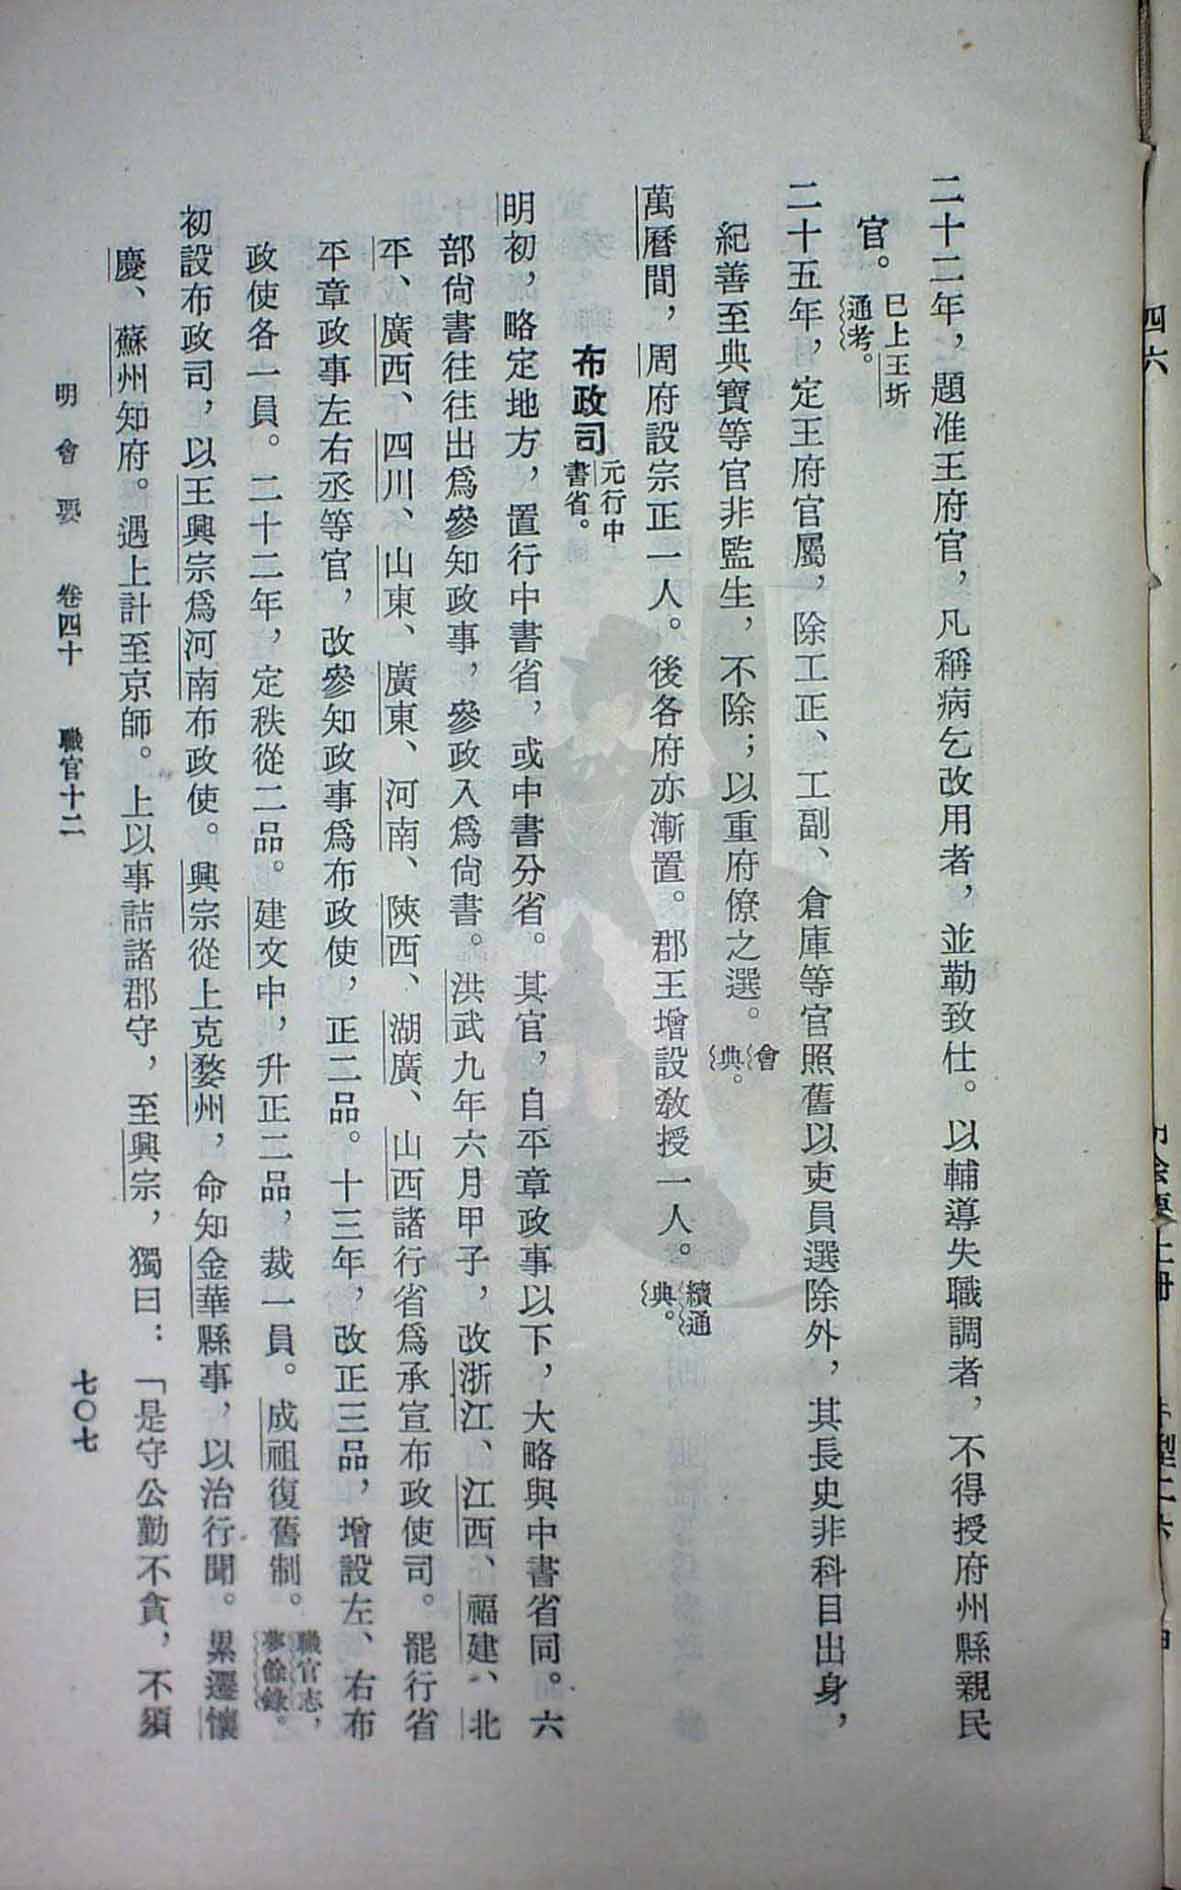 二十二年，題准王府官，凡稱病乞改用者，並勒致仕。以輔導失職調者，不得授府州縣親民
官。已上王圻通考。
二十五年，定王府官屬，除工正、工副、倉庫等官照舊以吏員選除外，其長史非科目出身，
紀善至典寶等官非監生，不除；以重府僚之選。會典。
萬曆間，周府設宗正一人。後各府亦漸置。郡王增設教授一人。續通典。
布政司元行中書省。
明初，略定地方，置行中書省，或中書分省。其官，自平章政事以下，大略與中書省同。六
部尙書往往出爲參知政事，參政入爲尙書。洪武九年六月甲子，改浙江、江西、福建、北
平、廣西、四川、山東、廣東、河南、陝西、湖廣、山西諸行省爲承宣布政使司。罷行省
平章政事左右丞等官，改參知政事爲布政使，正二品。十三年，改正三品，增設左、右布
政使各一員。二十二年，定秩從二品。建文中，升正二品，裁一員。成祖復舊制。職官志，夢餘錄。
初設布政司，以王興宗爲河南布政使。興宗從上克婺州，命知金華縣事，以治行聞。累遷懷
慶、蘇州知府。遇上計至京師。上以事詰諸郡守，至興宗，獨曰：「是守公勤不貪，不須
明會要 卷四十 職官十二
七〇七
四六